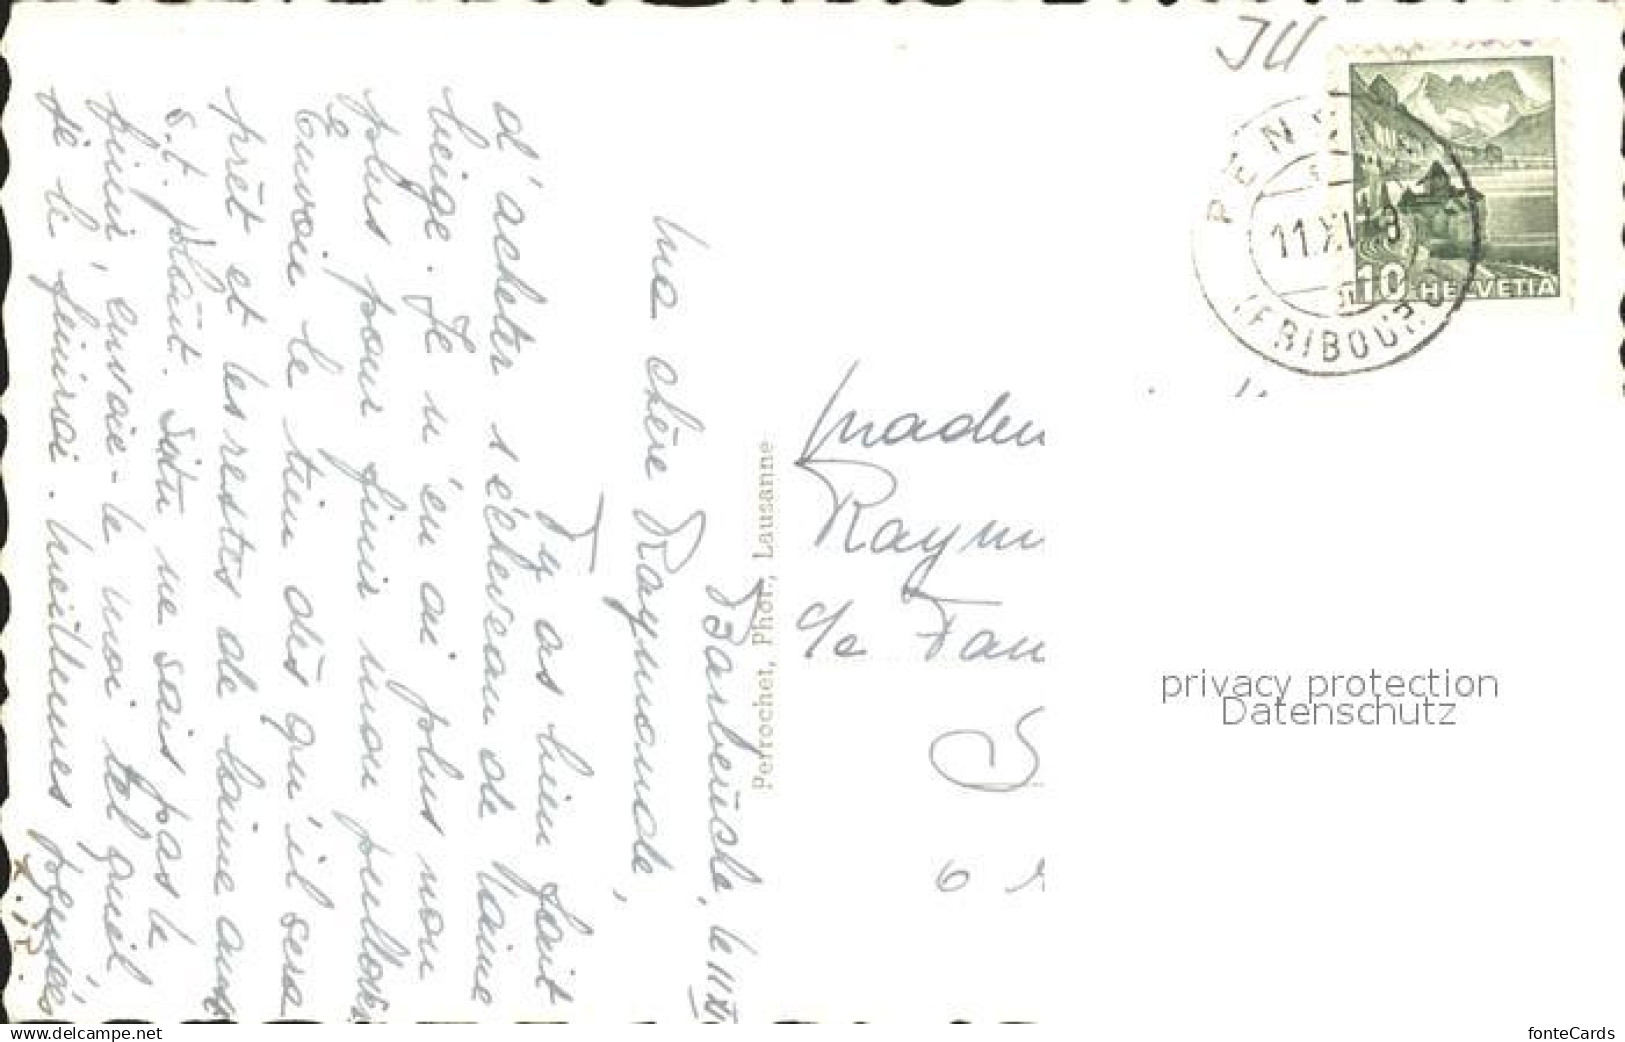 Barberêche, le 11 XI
Ma chère Raymonde,
Ty as bien fait
d'acheter 1 écheveau de laine
beige. Je n'en ai plus non
plus pour finir mon pullover
Envoie le tien dès qu'il sera
prêt et les restes de laine aussi
s.t. plaît. Si tu ne sais pas le
finir, envoie-le moi tel quel
je le finirai. Meilleures pensées
Perrochet, Phot., Lausanne
Madem
Raym
c/o Fam
6
PENS
11.XI
(FRIBOURG
10 HELVETIA
privacy protection
Datenschutz
www.delcampe.net
fonteCards